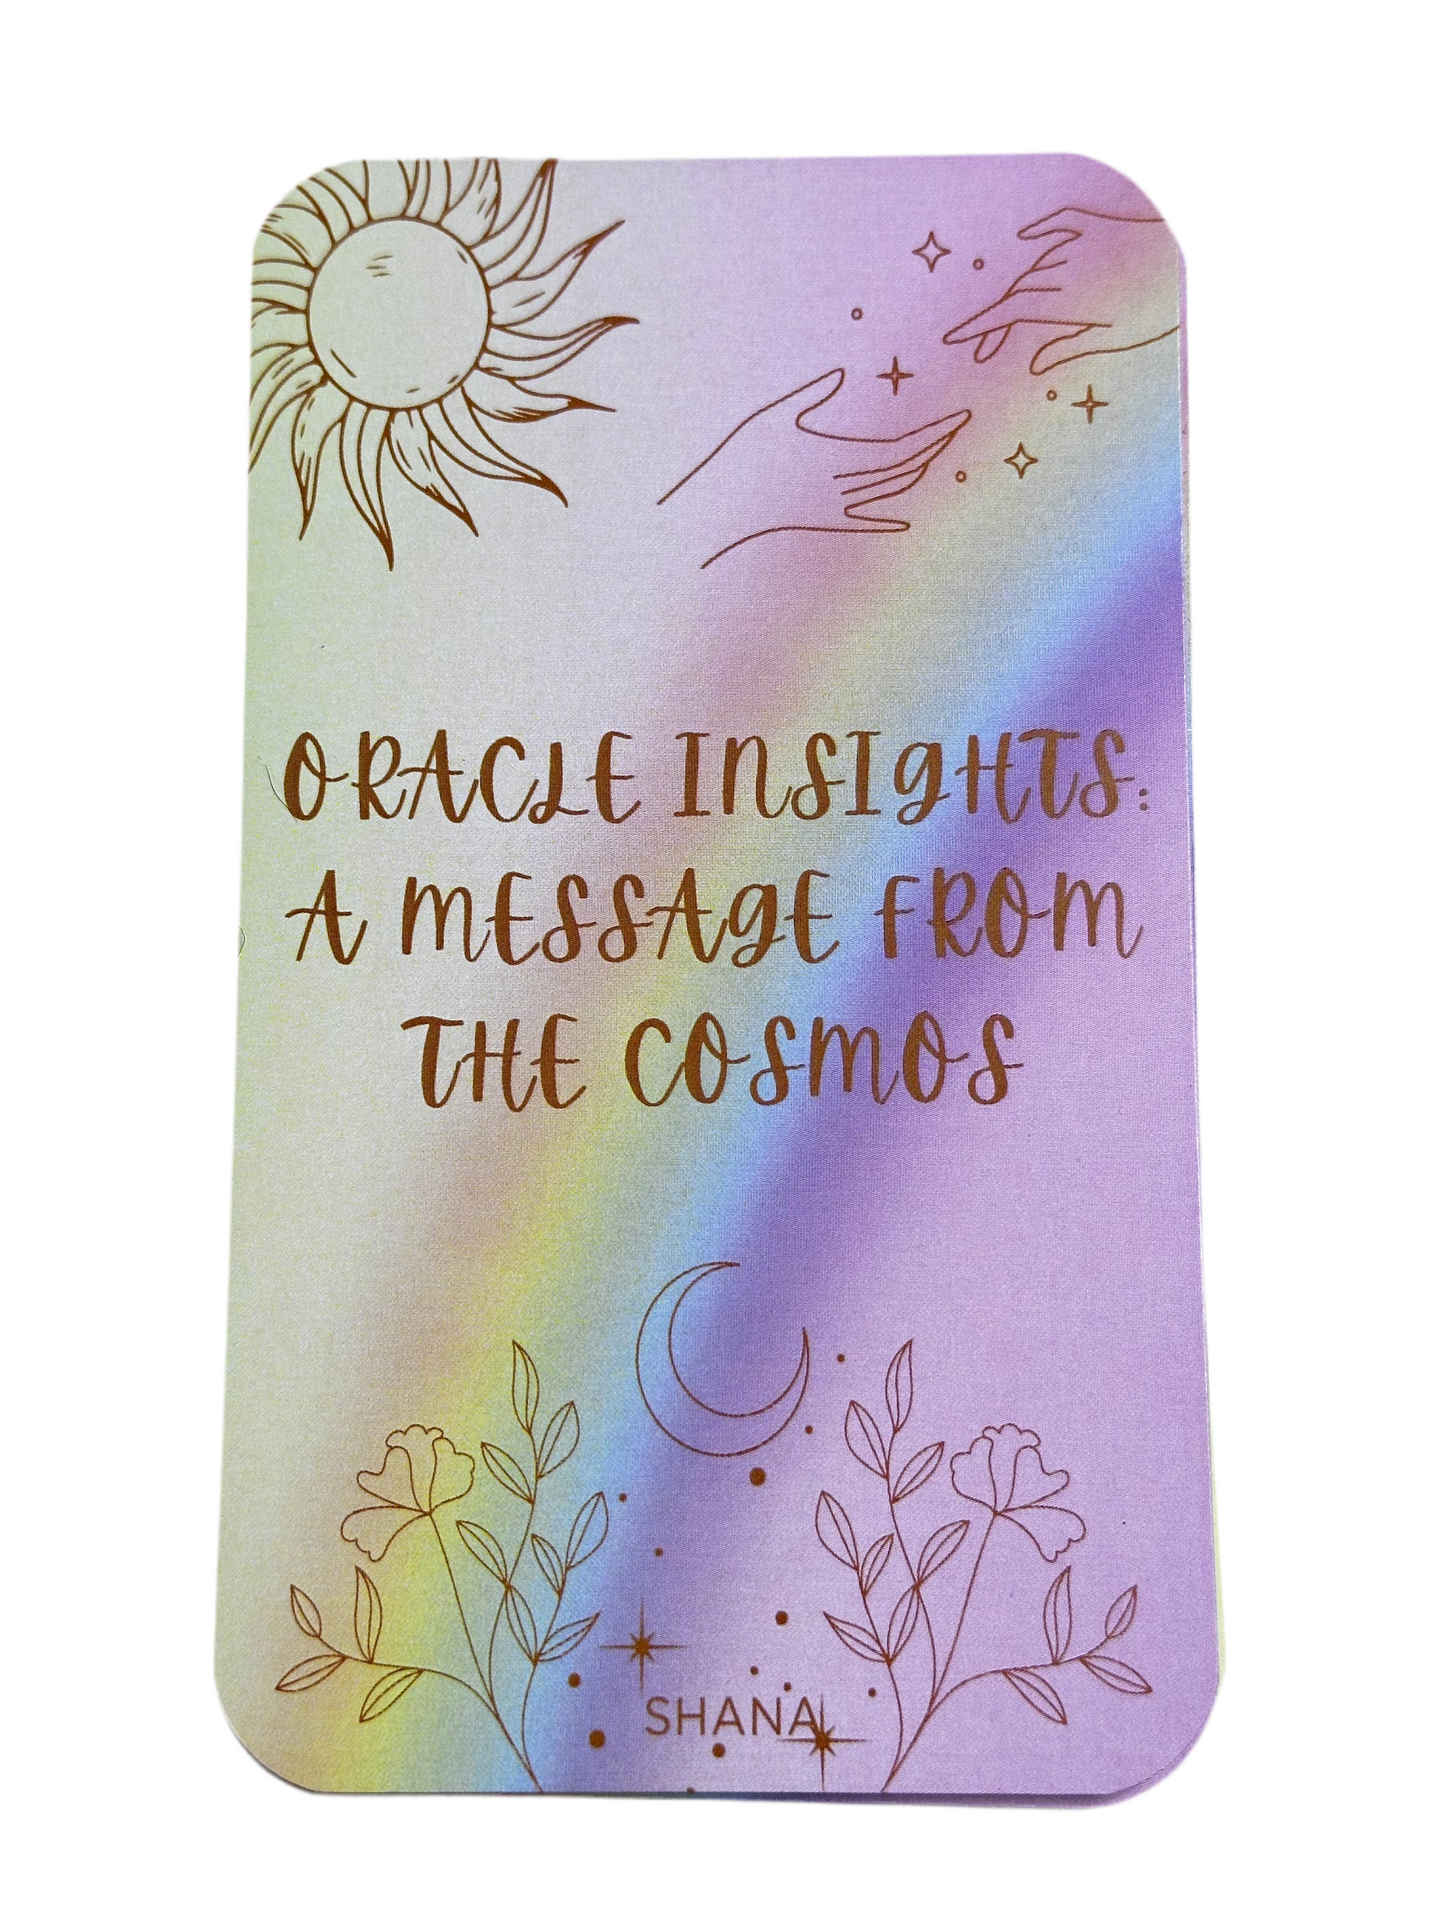 ORACLE INSIGHTS:
A MESSAGE FROM
THE COSMOS
SHANA